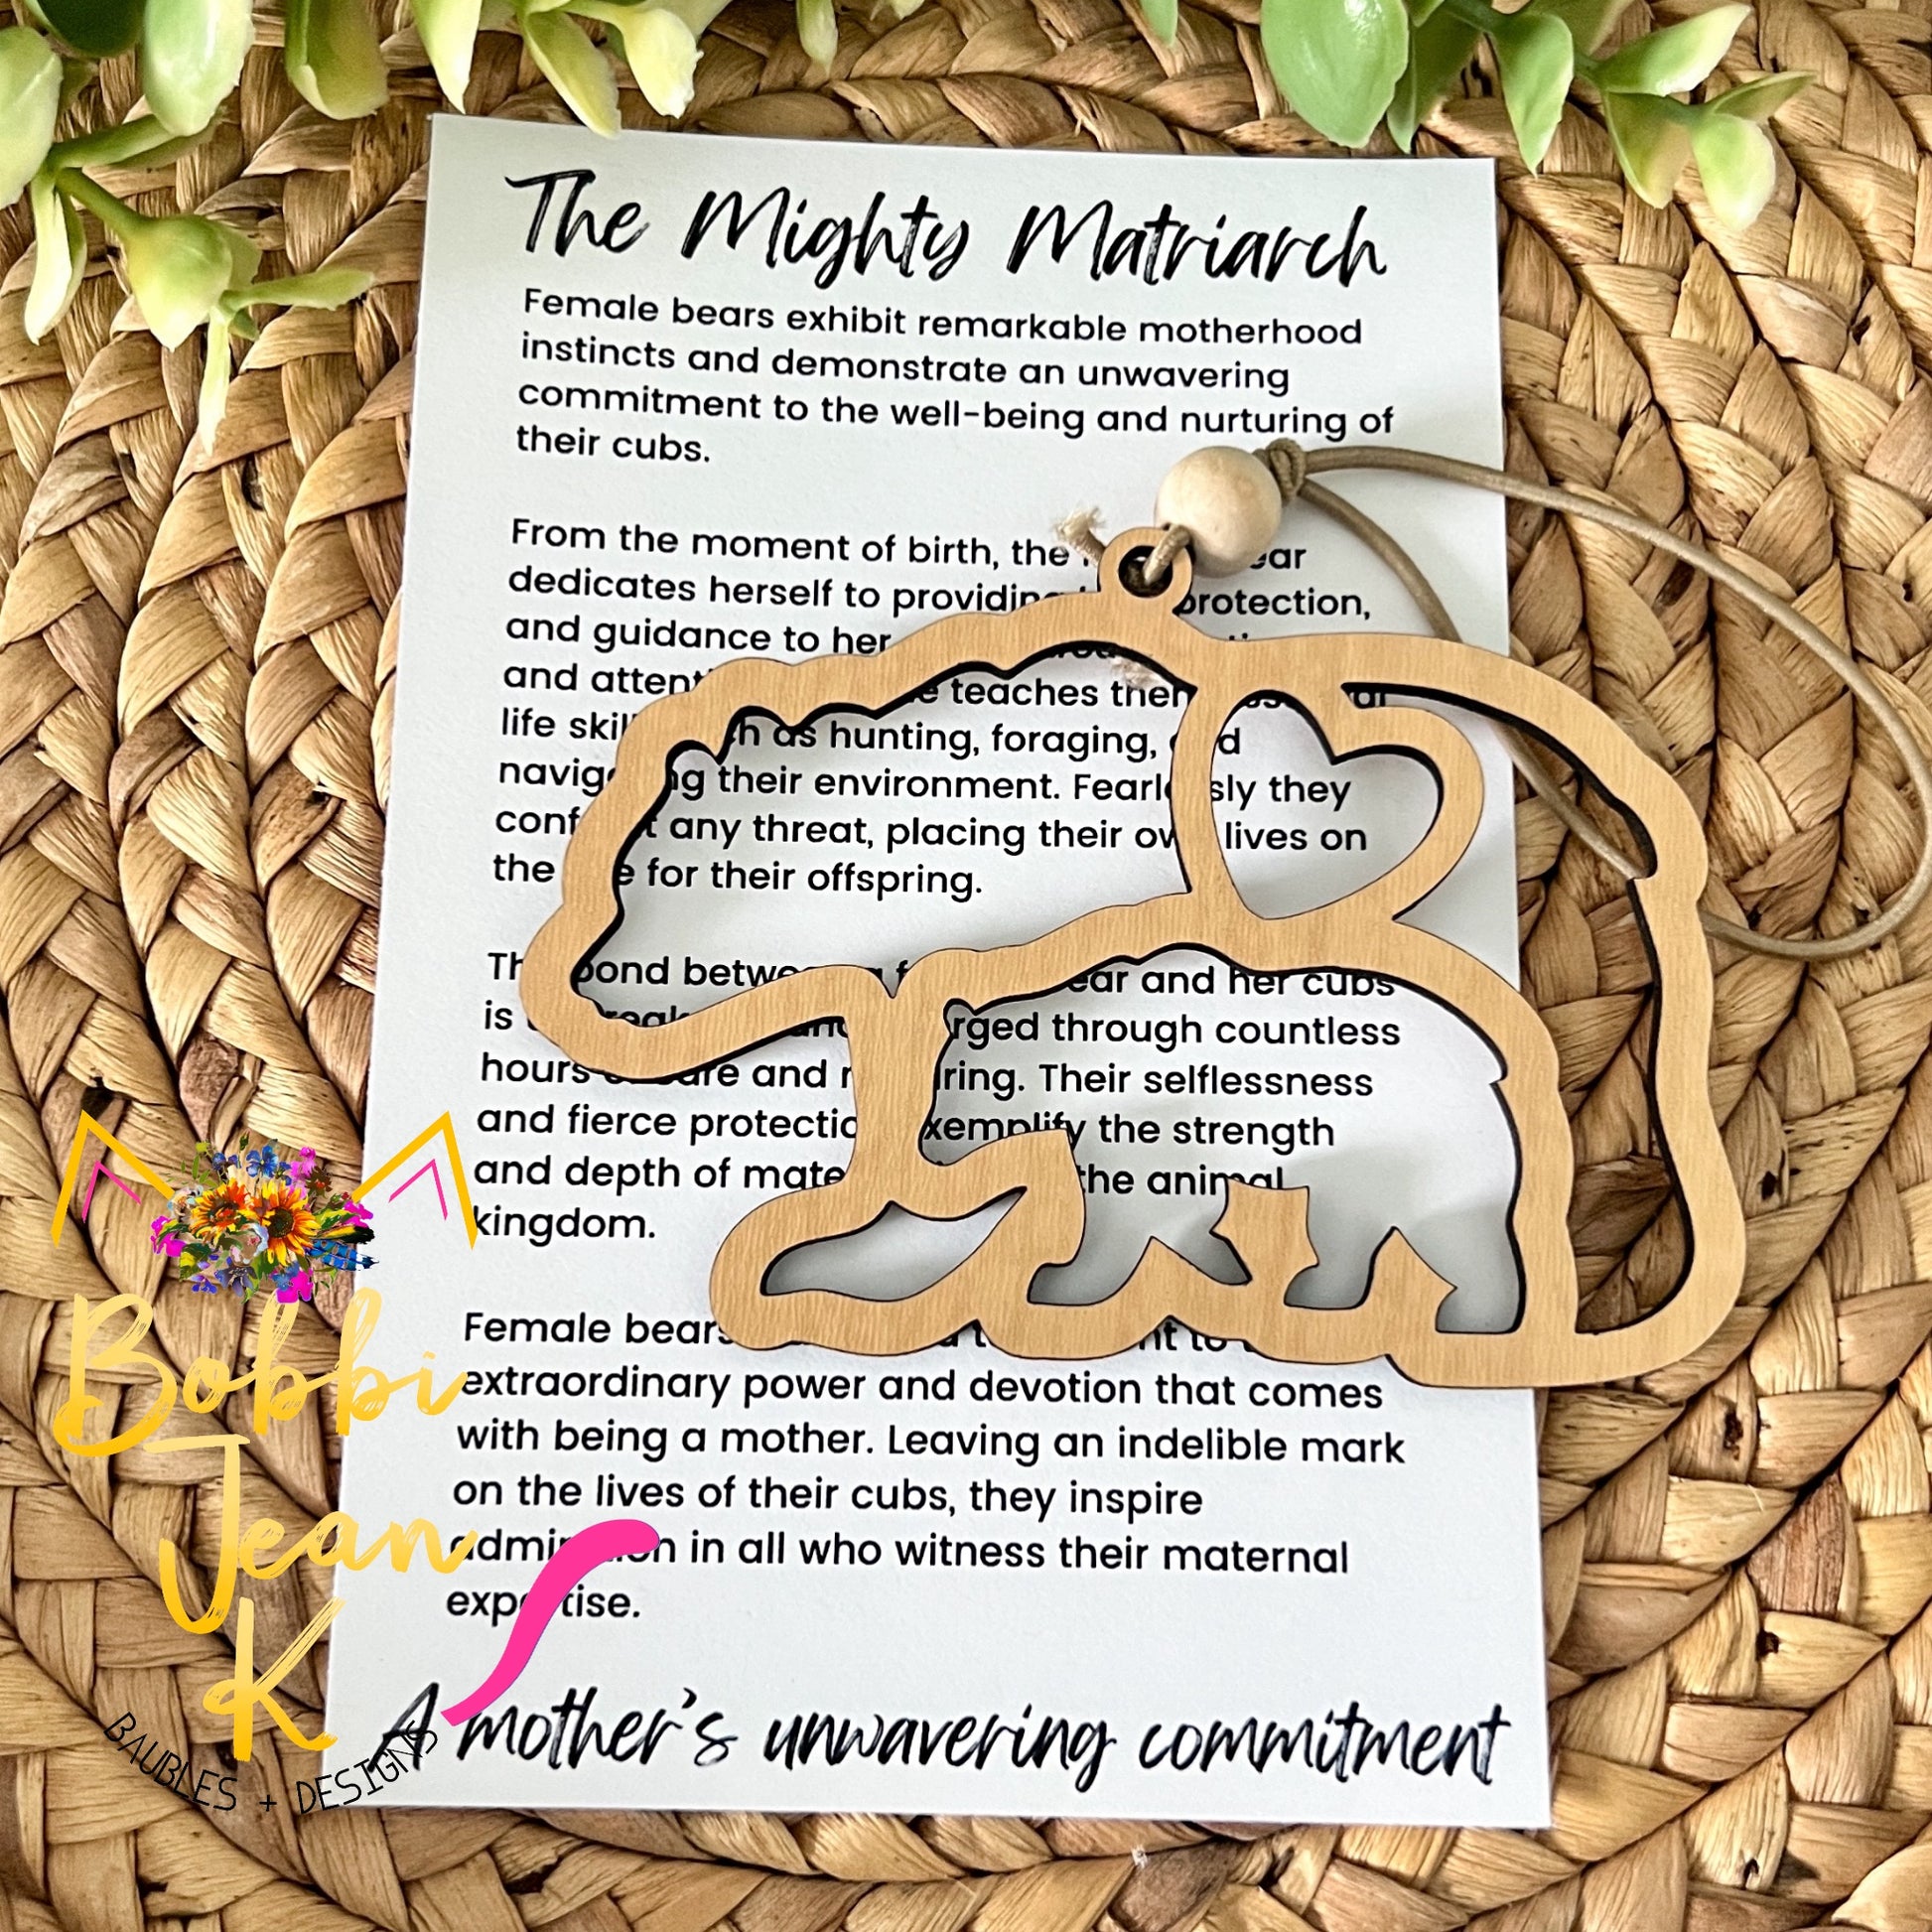 The Mighty Matriarch
Female bears exhibit remarkable motherhood
instincts and demonstrate an unwavering
commitment to the well-being and nurturing of
their cubs.
From the moment of birth, the
dedicates herself to providing protection,
and guidance to her
and teaches them
life as hunting, foraging,
their environment. Fearlessly they
any threat, placing their own lives on
the for their offspring.
bond between and her cubs
is through countless
hours and Their selflessness
and fierce protection exemplify the strength
and depth of the animal
kingdom.
Female bears to
extraordinary power and devotion that comes
with being a mother. Leaving an indelible mark
on the lives of their cubs, they inspire
admiration in all who witness their maternal
expertise.
A mother's unwavering commitment
Bobbi
Jean
K
BAUBLES + DESIGNS